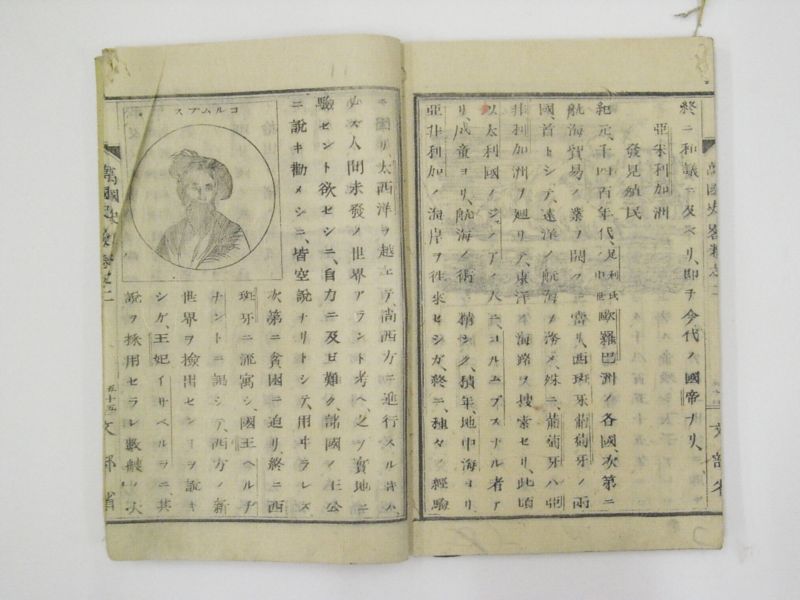 終ニ和議ニ及ベリ、即チ今代ノ國帝ナリ、
亞米利加洲
發見殖民
紀元千四百年代、足利氏ノ中世歐羅巴洲ノ各國、次第ニ
航海貿易ノ業ヲ開クニ當リ、西班牙葡萄牙ノ兩
國、首トシテ、遠洋ノ航海ヲ務メ、殊ニ、葡萄牙ハ、亞
非利加洲ヲ廻リテ、東洋ノ海路ヲ搜索セリ、此頃
以太利國ノジノアノ人ニ、コルムブスナル者ア
リ、成童ヨリ、航海ノ術ニ精シク、積年、地中海ヨリ、
亞非利加ノ海岸ヲ往來セシガ、終ニ、種々ノ經驗
ニ因リ、太西洋ヲ越エテ、尚西方ニ進行スルトキハ、
必ズ人間未發ノ世界アラント考ヘ、之ヲ實地ニ
驗セント欲セシニ、自力ニ及ビ難ク、諸國ノ王公
ニ說キ勸メシニ、皆空說ナリトシテ、用ヰラレズ
次第ニ貧困ニ迫リ、終ニ西
班牙ニ流寓シ、國王ヘルヂ
ナントニ謁シテ、西方ノ新
世界ヲ撿出センコヲ說キ
シケ、王妃イサベルラニ、其
說ヲ採用セラレ、數艘ノ大
コルムブス
萬國史略卷之二
五十五
文部省
萬國史略卷之二
文部省